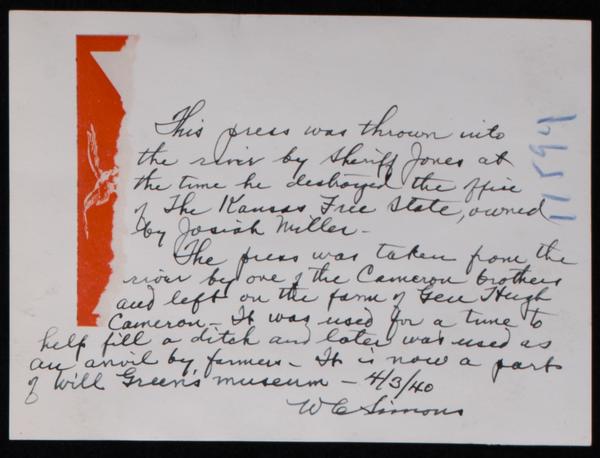 This press was thrown into
the river by Sheriff Jones at
the time he destroyed the office
of The Kansas Free State, owned
by Josiah Miller -
The press was taken from the
river by one of the Cameron brothers
and left on the farm of Gen Hugh
Cameron - It was used for a time to
help fill a ditch and later was used as
an anvil by farmers - It is now a part
of Will Green's museum - 4/3/40
W C Simons